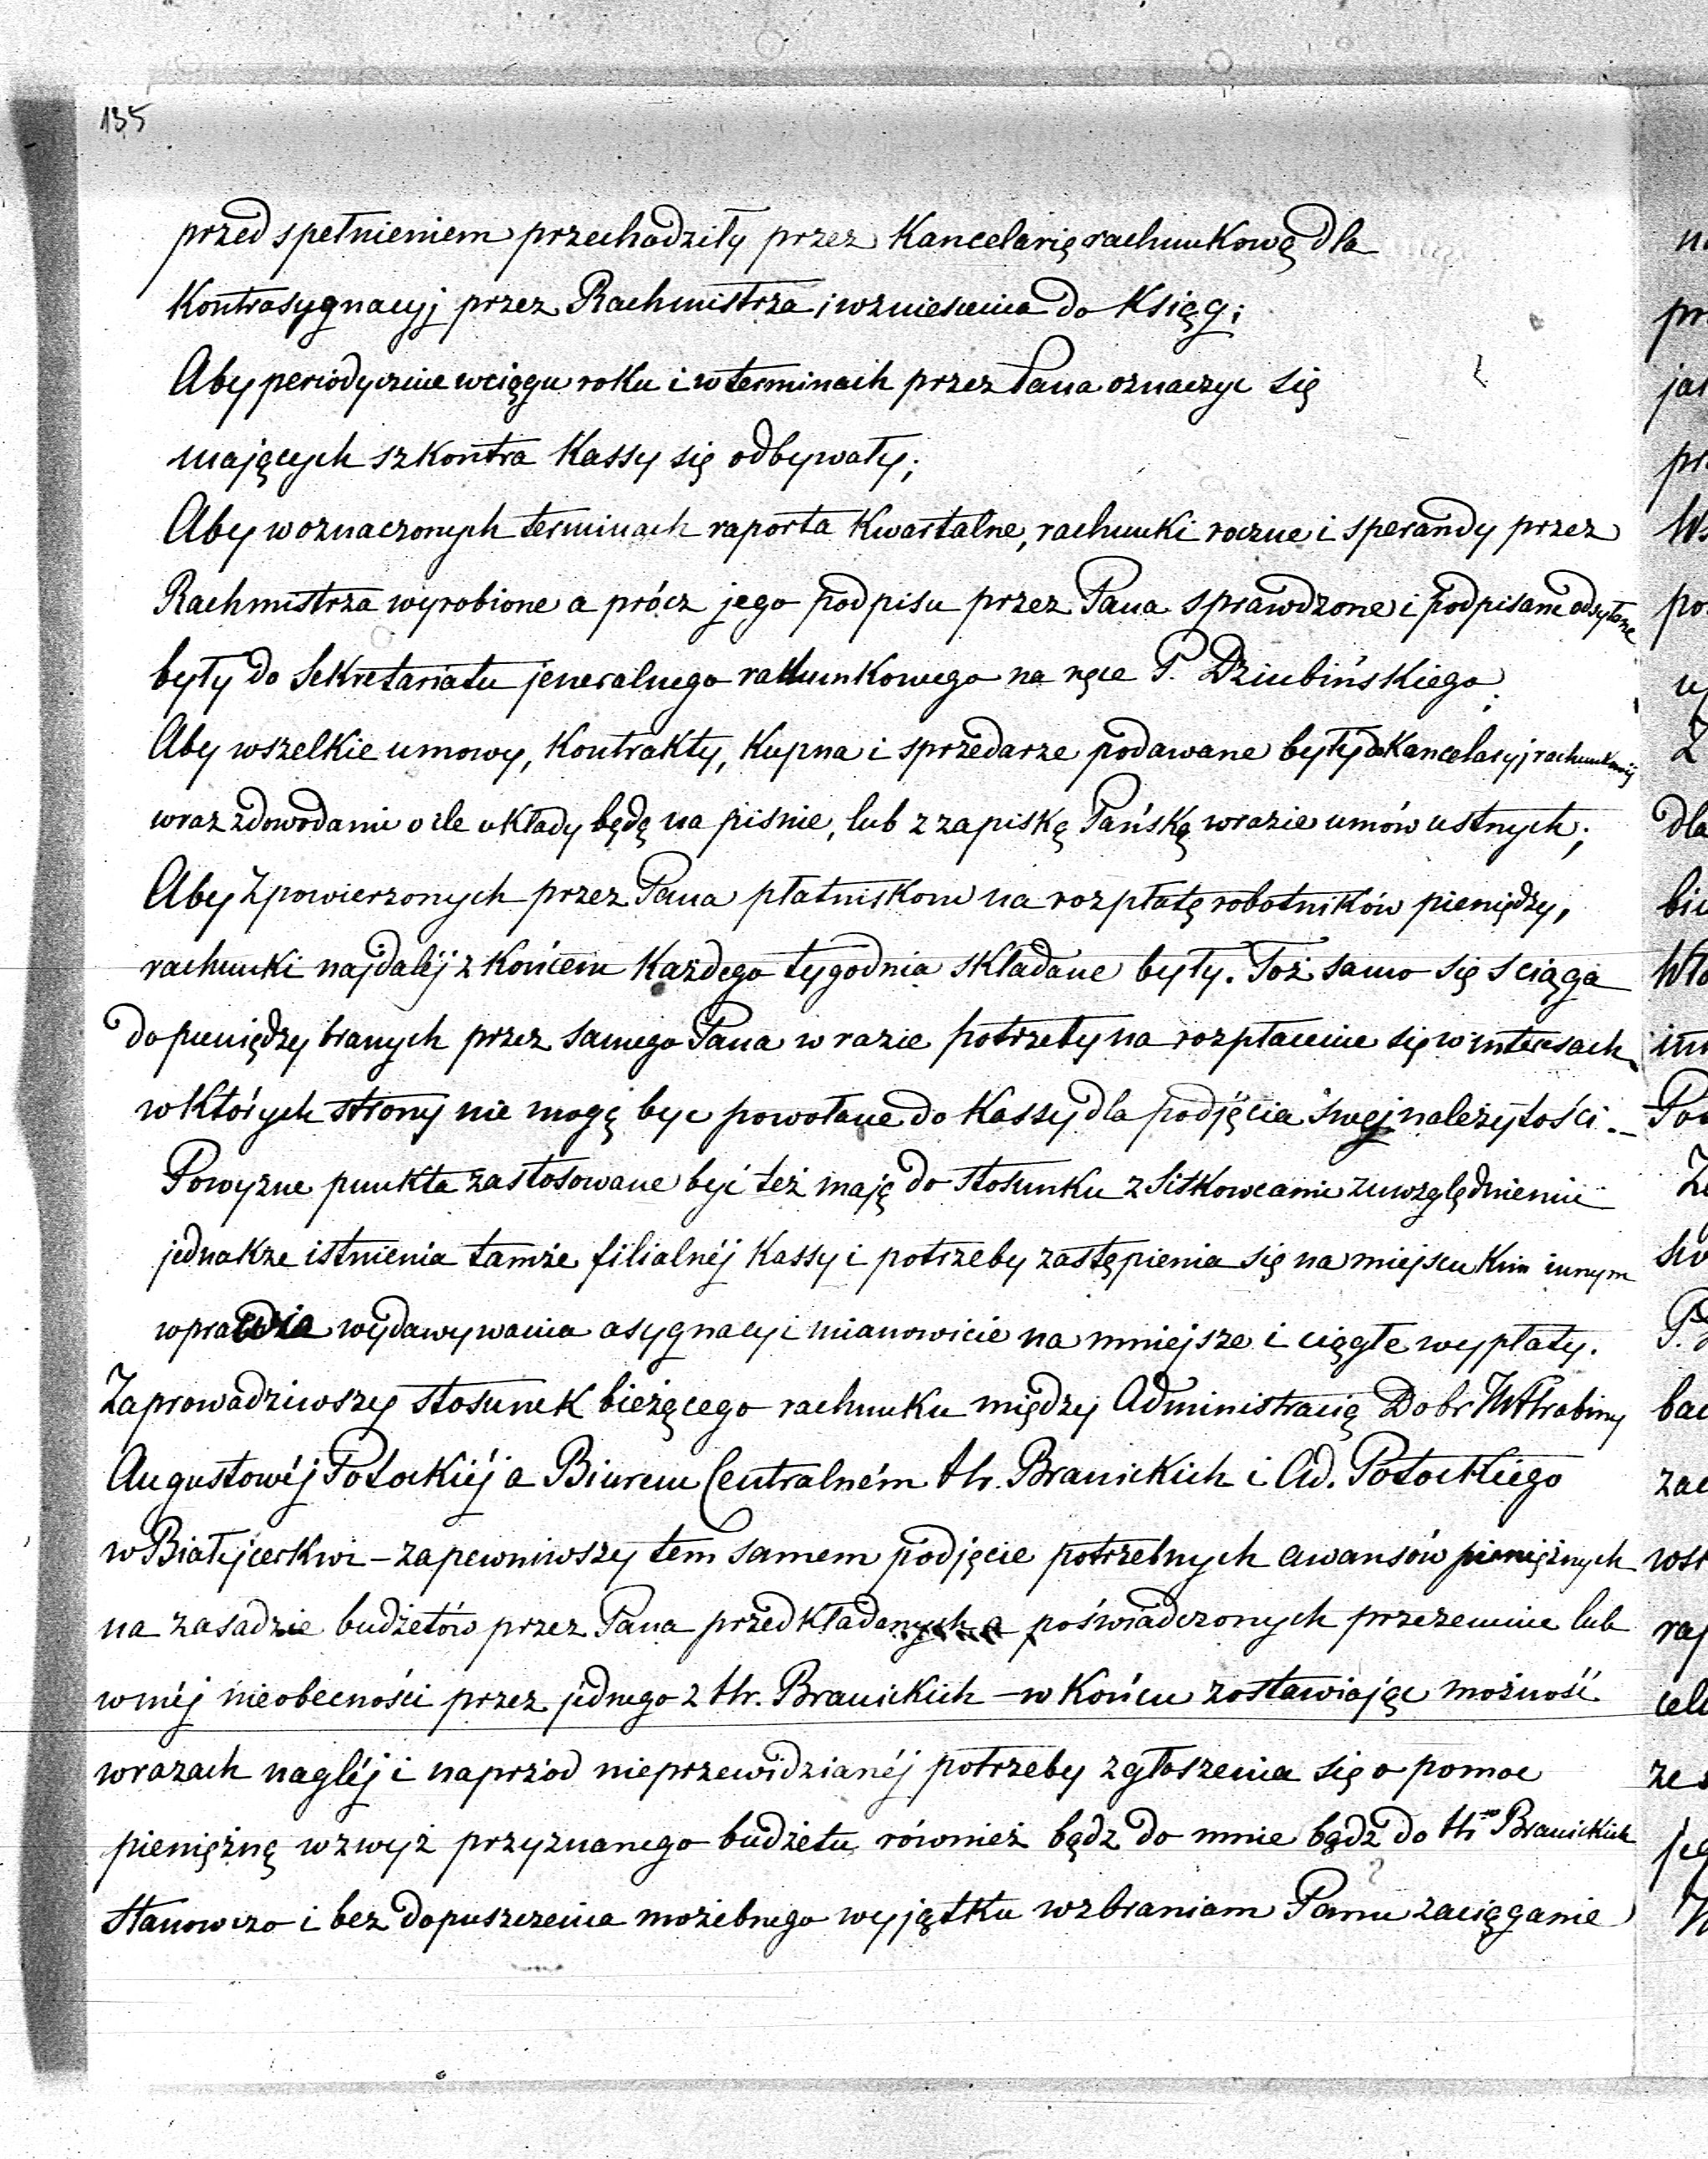 135
przed spełnieniem przechodziły przez Kancelarię rachunkową dla
Kontrasygnacyj przez Rachmistrza i wzniesienia do Ksiąg;
Aby periodycznie wciągu roku i w terminach przez Pana oznaczyc się
mających szkontra Kassy się odbywały;
Aby w oznaczonych terminach raporta Kwartalne, rachunki roczne i sperandy przez
Rachmistrza wyrobione a prócz jego podpisu przez Pana sprawdzone i podpisane odsyłane
były do Sekretariatu jeneralnego rachunkowego na ręce P. Dziubińskiego;
Aby wszelkie umowy, Kontrakty, Kupna i sprzedarze podawane były do Kancelaryj rachunkowéj
wraz zdowodami o ile układy będą na pismie, lub z zapiską Pańską wrazie umów ustnych;
Aby z powierzonych przez Pana płatniskom na rozpłatę robotników pieniędzy,
rachunki najdaléj z Końcem Każdego tygodnia składane były. Toż samo się sciąga
do pieniędzy branych przez samego Pana w razie potrzeby na rozpłacenie się w interesach
w których strony nie mogą byc powołane do Kassy dla podjęcia swej należytości. –
Powyzne punkta zastosowane być też mają do stosunku z Sitkowcami zuwzględnieniu
jednakze istnienia tamże filialnéj Kassy i potrzeby zastąpienia się na miejscu Kim innym
w prawie wydawywania asygnacyi mianowicie na mniejsze i ciągłe wypłaty.
Zaprowadziwszy stosunek bieżącego rachunku między Administracią Dobr JW Hrabiny
Augustowéj Potockiéj a Biurem Centralném Hr. Branickich i Ad. Potockiego
w Białejcerkwi – zapewniwszy tem samem podjęcie potrzebnych awansów pieniężnych
na zasadzie budżetów przez Pana przedkładanych a poświadczonych przezemnie lub
w méj nieobecności przez jednego z Hr. Branickich – w Końcu zostawiając możność
w razach nagłéj i naprzód nieprzewidzianéj potrzeby zgłoszenia się o pomoc
pieniężną wzwyż przyznanego budżetu również bądz do mnie bądz do Hr Branickich
Stanowczo i bez dopuszczenia możebnego wyjątku wzbraniam Panu zaciąganie